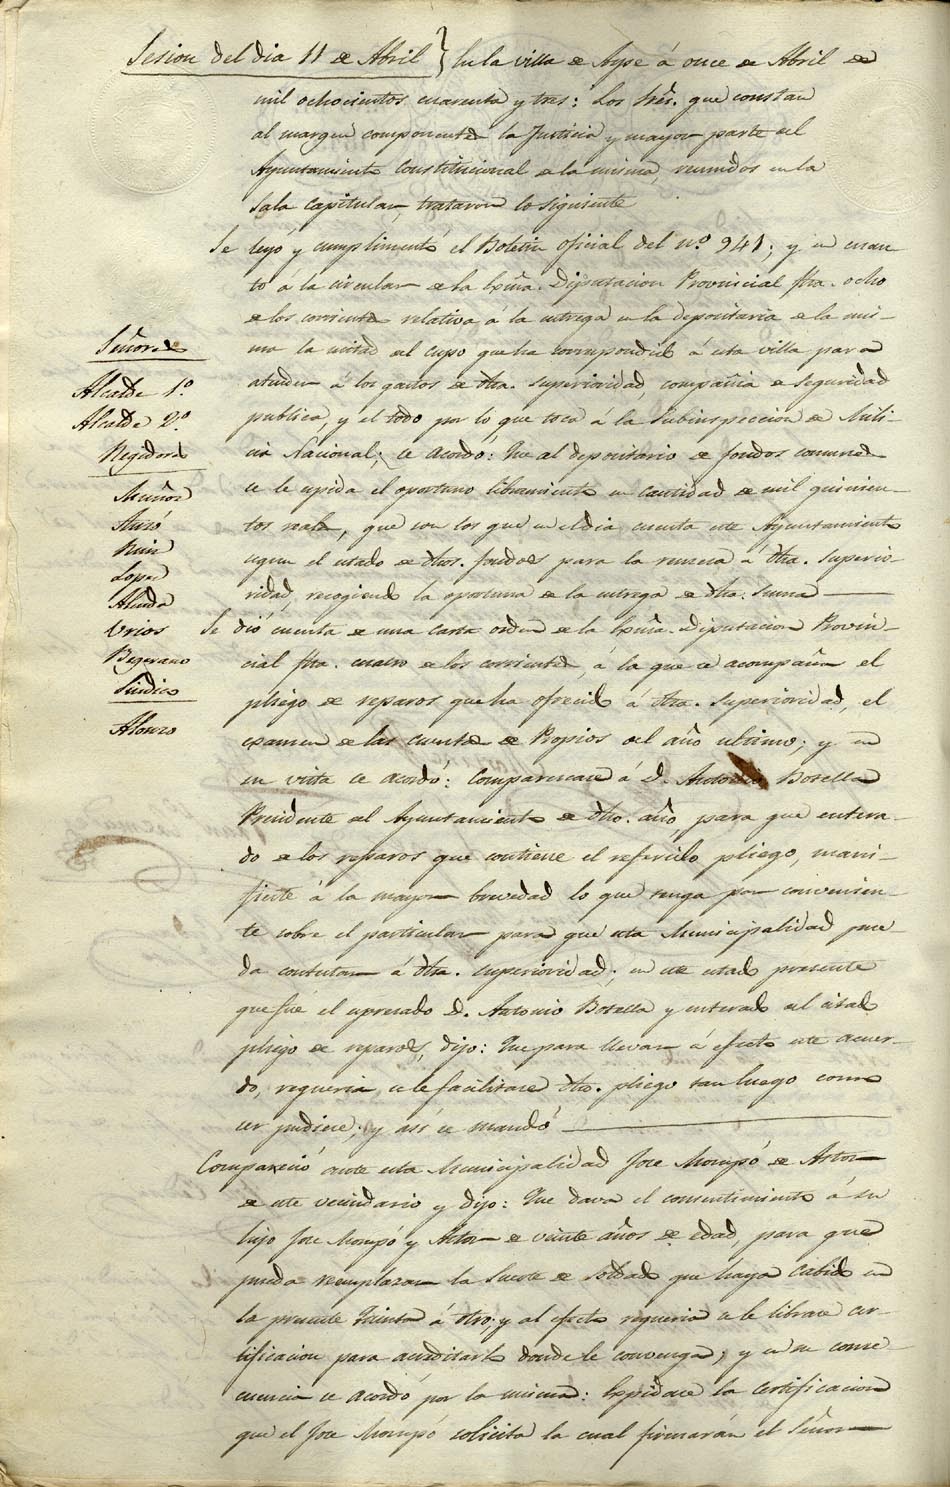 Sesion del dia 11 de Abril } En la villa de Aspe á once de Abril de
mil ochocientos cuarenta y tres: Los Sres. que constan
al margen componentes la Justicia y mayor parte del
Ayuntamiento Constitucional de la misma, reunidos en la
Sala Capitular, trataron lo siguiente
Se leyó y cumplimentó el Boletin oficial del nº 941; y en cuan-
to á la circular de la Exma. Diputacion Provincial fha. ocho
de los corrientes relativa á la entrega en la depositaria de la mis-
ma la mitad del cupo que ha correspondido á esta villa para
atender á los gastos de dha. superioridad, compañia de seguridad
publica, y el todo por lo que toca á la Subinspeccion de Mili-
cia Nacional; se acordó: Que al depositario de fondos comunes
se le espida el oportuno libramiento en cantidad de mil quinien-
tos reales, que son los que en el dia cuenta este Ayuntamiento
segun el estado de dhos. fondos para la remesa á dha. superio-
ridad, recogiendo la oportuna de la entrega de dha. suma
Se dió cuenta de una carta orden de la Exma. Diputacion Provin-
cial fha. cuatro de los corrientes, á la que se acompaña el
pliego de reparos que ha ofrecido á dha. superioridad, el
examen de las cuentas de Propios del año ultimo; y en
su vista se acordó: Comparezca á D. Antonio Botella
Presidente del Ayuntamiento de dho. año para que entera-
do de los reparos que contiene el referido pliego, mani-
fieste á la mayor brevedad lo que tenga por convenien-
te sobre el particular para que esta Municipalidad pue-
da contestar á dha. superioridad; en este estado presente
que fué el espresado D. Antonio Botella y enterado del citado
pliego de reparos, dijo: Que para llevar á efecto este acuer-
do, requeria se le facilitase dho. pliego tan luego como
ser pudiese; y asi se mandó
Compareció ante esta Municipalidad Jose Mompó de Astor
de este vecindario y dijo: Que dava el consentimiento á su
hijo Jose Mompó y Astor de veinte años de edad, para que
pueda remplazar la suerte de soldado que haya cabido en
la presente Quinta á otro; y al efecto requeria se le librase cer-
tificacion para acreditarlo donde le convenga; y en su conse
cuencia se acordó por la misma: Expidase la certificacion
que el Jose Mompó solicita la cual firmarán el Señor
Señores
Alcalde 1º
Alcalde 2º
Regidores
Muñoz
Ruiz
Lopez
Urios
Begerano
Sindico
Alonzo